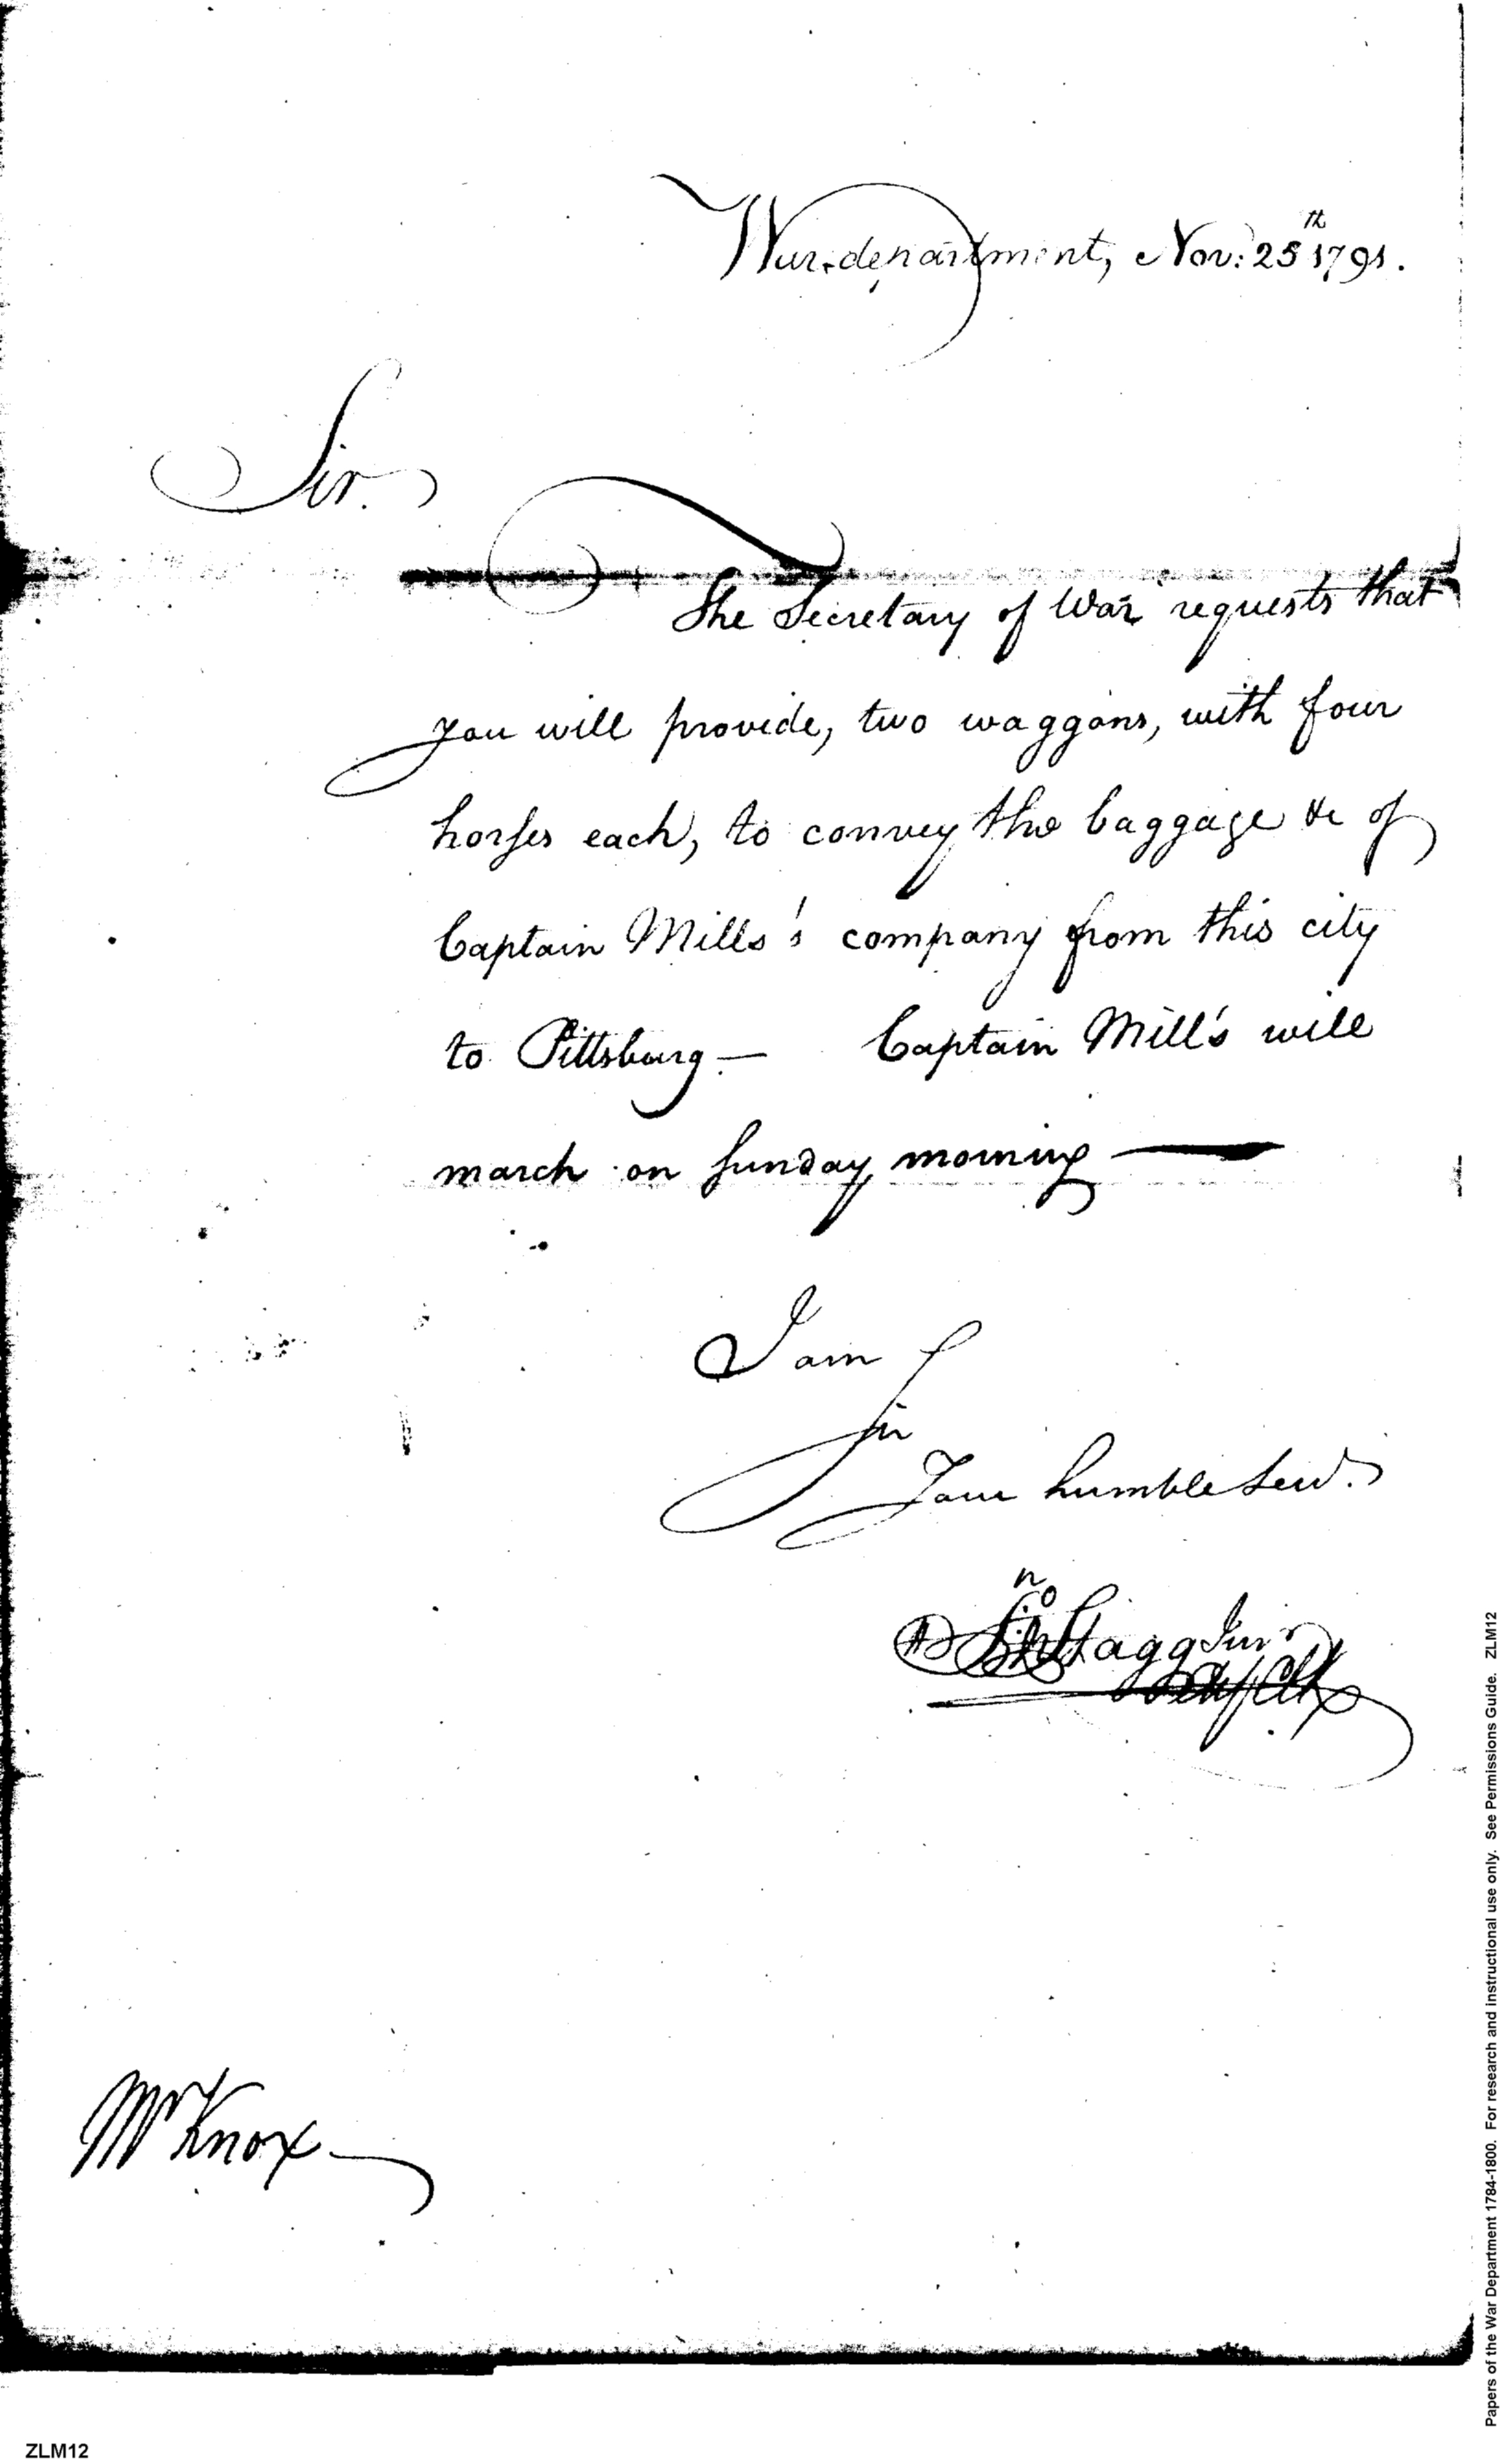 War department, Nov: 25th 1791.
Sir.
The Secretary of War requests that
you will provide, two waggons, with four
horses each, to convey the baggage &c of
Captain Mills's company from this city
to Pittsburg —
Captain Mill's will
march on Sunday morning —
I am
Sir
Your humble Servt.
Jno Stagg Junr
Mr Knox
Papers of the War Department 1784-1800. For research and instructional use only. See Permissions Guide. ZLM12
ZLM12